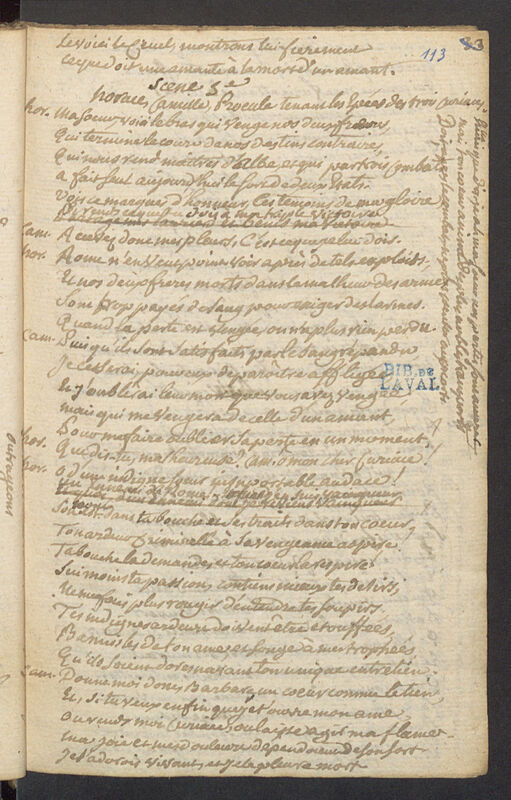 113
le voici le cruel, montrons lui fierement
ce que doit une amante à la mort d'un amant.
Scene 5e
horace, Camille, Procule tenant les épées des trois Curiaces
hor. ma soeur voici le bras qui venge nos deux freres,
Qui termine le cours de nos destins contraires,
Qui nous rend maitres d'albe et qui par trois combats
a fait seul aujourd'hui le sort de deux Etats.
Vois ces marques d'honneur, ces temoins de ma gloire
ma victoire
Cam. Recevez donc mes pleurs, C'est ce que je lui dois.
hor. Rome n'en veut point voir après de tels exploits,
Et nos deux freres morts dans le malheur des armes
Sont trop payés de sang pour exiger des larmes.
Quand la perte est vengée on n'a plus rien perdu.
Cam. Puisqu'ils sont satisfaits par le sang repandu
Je cesserai pour eux de paroitre affligée
Et j'oublierai leur mort que vous avez vengée
mais qui me vengera de celle d'un amant,
Pour me faire oublier sa perte en un moment,
hor. Que dis-tu, malheureuse? Cam. ô mon cher Curiace!
hor. O d'une indigne soeur insupportable audace!
vainqueur
Son nom est dans ta bouche et ses traits dans ton coeur,
Ton ardeur criminelle à la vengeance aspire!
Ta bouche la demande et ton coeur la respire!
Sui moins ta passion, contiens mieux tes desirs,
Ne me fais plus rougir d'entendre tes soupirs.
Tes indignes ardeurs doivent être etouffées,
Bannis les de ton ame et songe à mes trophées
Qu'ils soient dores navant ton unique entretien.
Cam. Donne moi donc, Barbare, un coeur comme le tien
Et, si tu veux enfin que je t'ouvre mon ame
ou rends moi Curiace, ou laisse agir ma flame
ma joie et mes douleurs dependoient de son sort
Je l'adorois vivant, et je le pleure mort
BIB. DE
LAVAL
outrageons